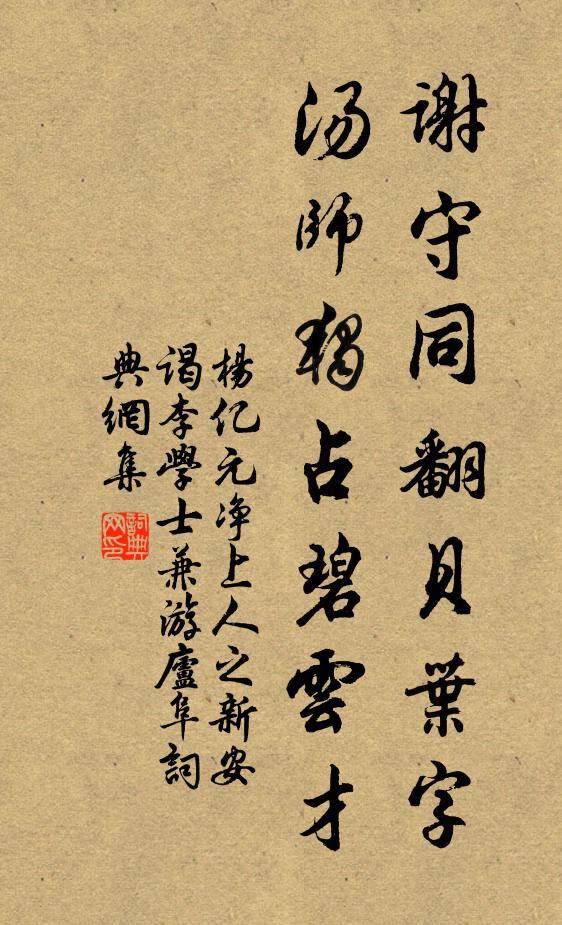 謝守同翻貝葉字
湯師獨占碧雲才
楊亿元净上人之新安
謁李學士兼游廬阜詞
典網集
詞典
网印